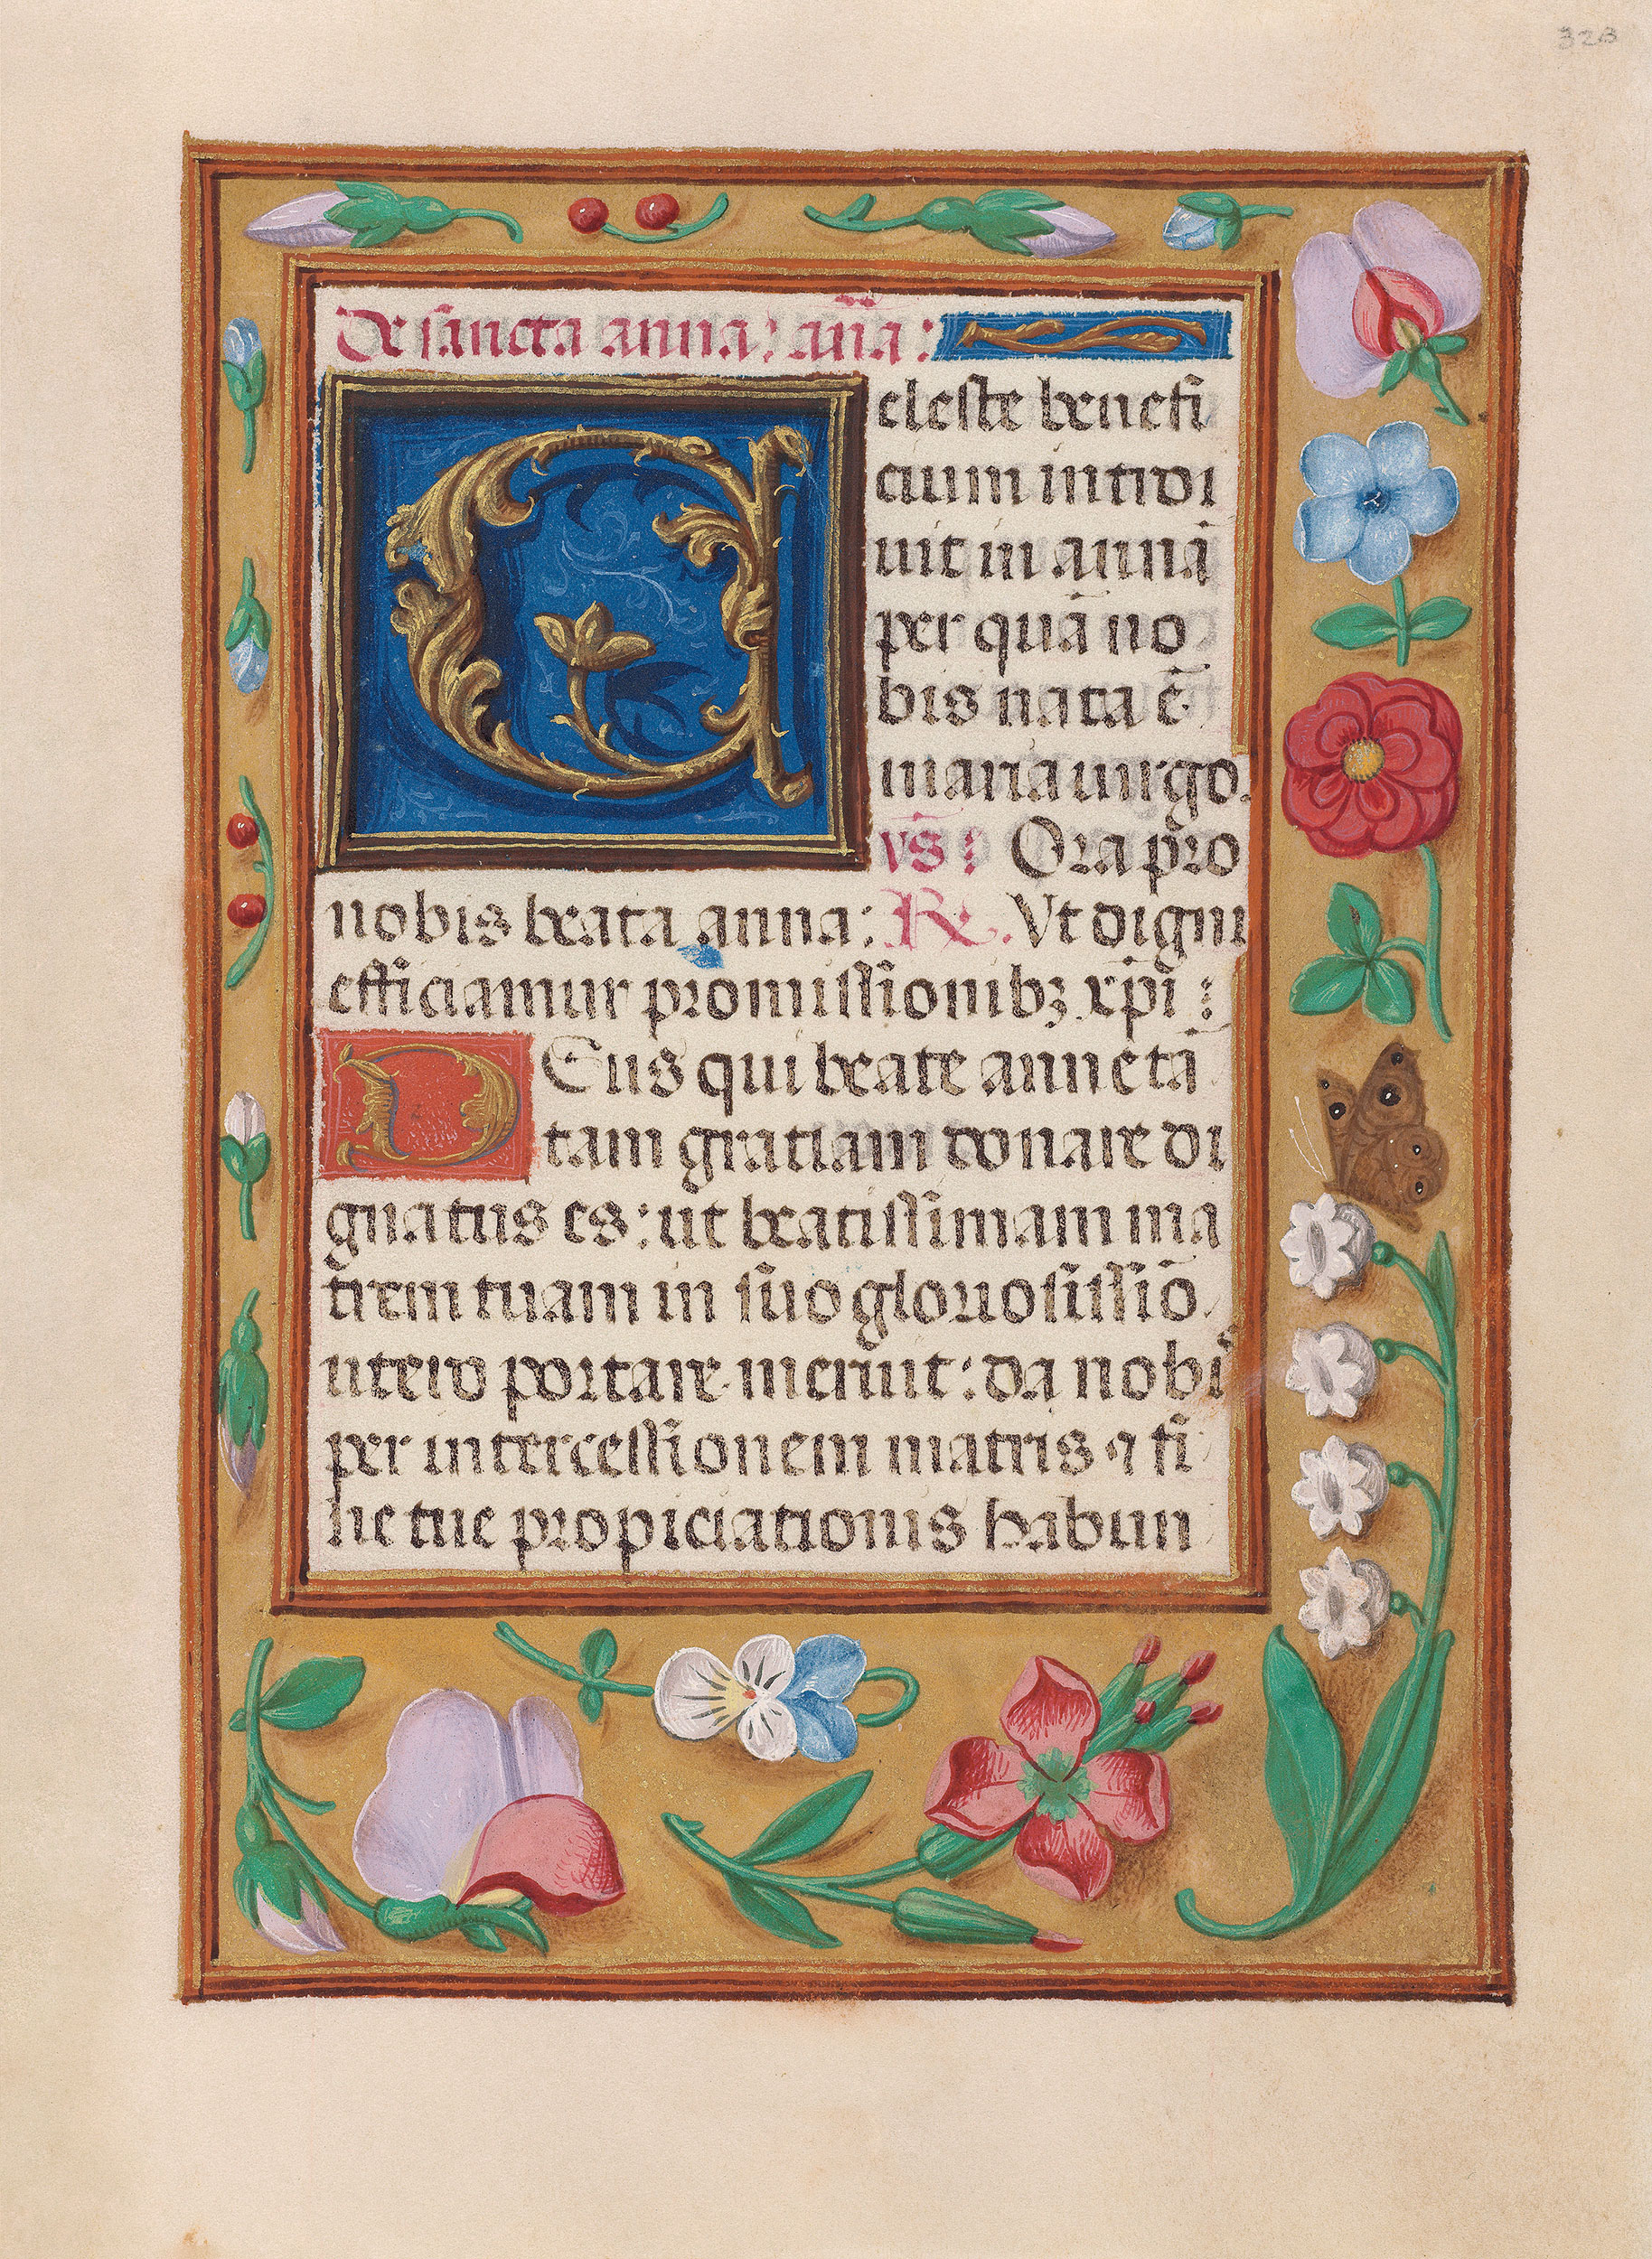 323
De sancta anna: aña:
Celeste benefi
cium introi
uit in annā
per quā no
bis nata ē
maria uirgo.
vs̄: Ora pro
nobis beata anna: R. Vt digni
efficiamur promissionibꝫ xp̄i:
DEus qui beate anne tā
tam gratiam donare di
gnatus es: ut beatissimam ma
trem tuam in suo gloriosissīo
utero portare meruit: da nobis
per intercessionem matris ⁊ fi
lie tue propiciationis habun